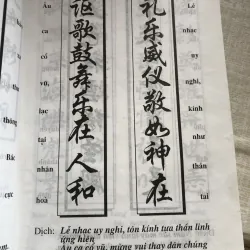 礼乐威仪敬如神在
Lễ nhạc uy nghi, kính như thần tại
讴歌鼓舞乐在人和
Âu ca cổ vũ, lạc tại nhân hoà
thông
Bác
cực
Dịch: Lễ nhạc uy nghi, tôn kính tựa thần linh
ứng hiện
Âu ca cổ vũ, mừng vui thay dân chúng